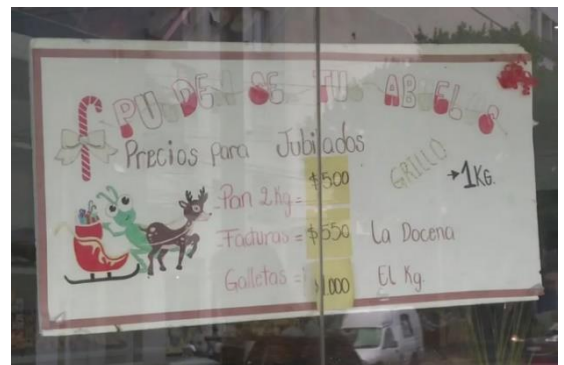 PU DE SE TU ABEL
Precios para Jubilados
Pan 2Kg = $500
GRILLO → 1KG.
Facturas = $550 La Docena
Galletas = $1.000 El Kg.